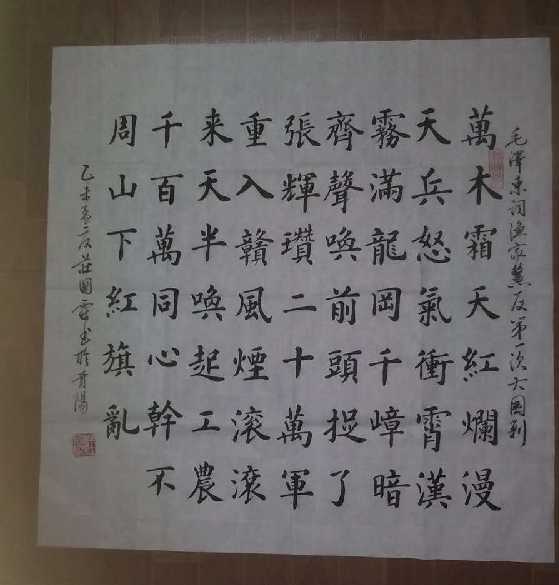 毛澤東詞漁家傲反第一次大圍剿
萬木霜天紅爛漫
天兵怒氣衝霄漢
霧滿龍岡千嶂暗
齊聲喚前頭捉了
張輝瓚二十萬軍
重入贛風煙滾滾
来天半喚起工農
千百萬同心幹不
周山下紅旗亂
乙未春二月莊國书於